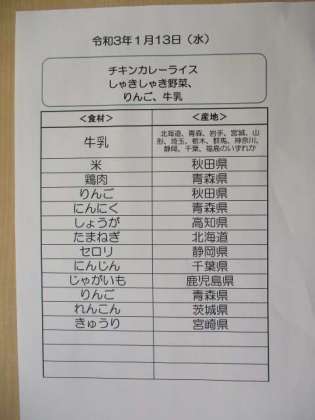 令和3年1月13日（水）
チキンカレーライス
しゃきしゃき野菜、
りんご、牛乳
＜食材＞ ＜産地＞
牛乳 北海道、青森、岩手、宮城、山
形、埼玉、栃木、群馬、神奈川、
静岡、千葉、福島のいずれか
米 秋田県
鶏肉 青森県
りんご 秋田県
にんにく 青森県
しょうが 高知県
たまねぎ 北海道
セロリ 静岡県
にんじん 千葉県
じゃがいも 鹿児島県
りんご 青森県
れんこん 茨城県
きゅうり 宮崎県